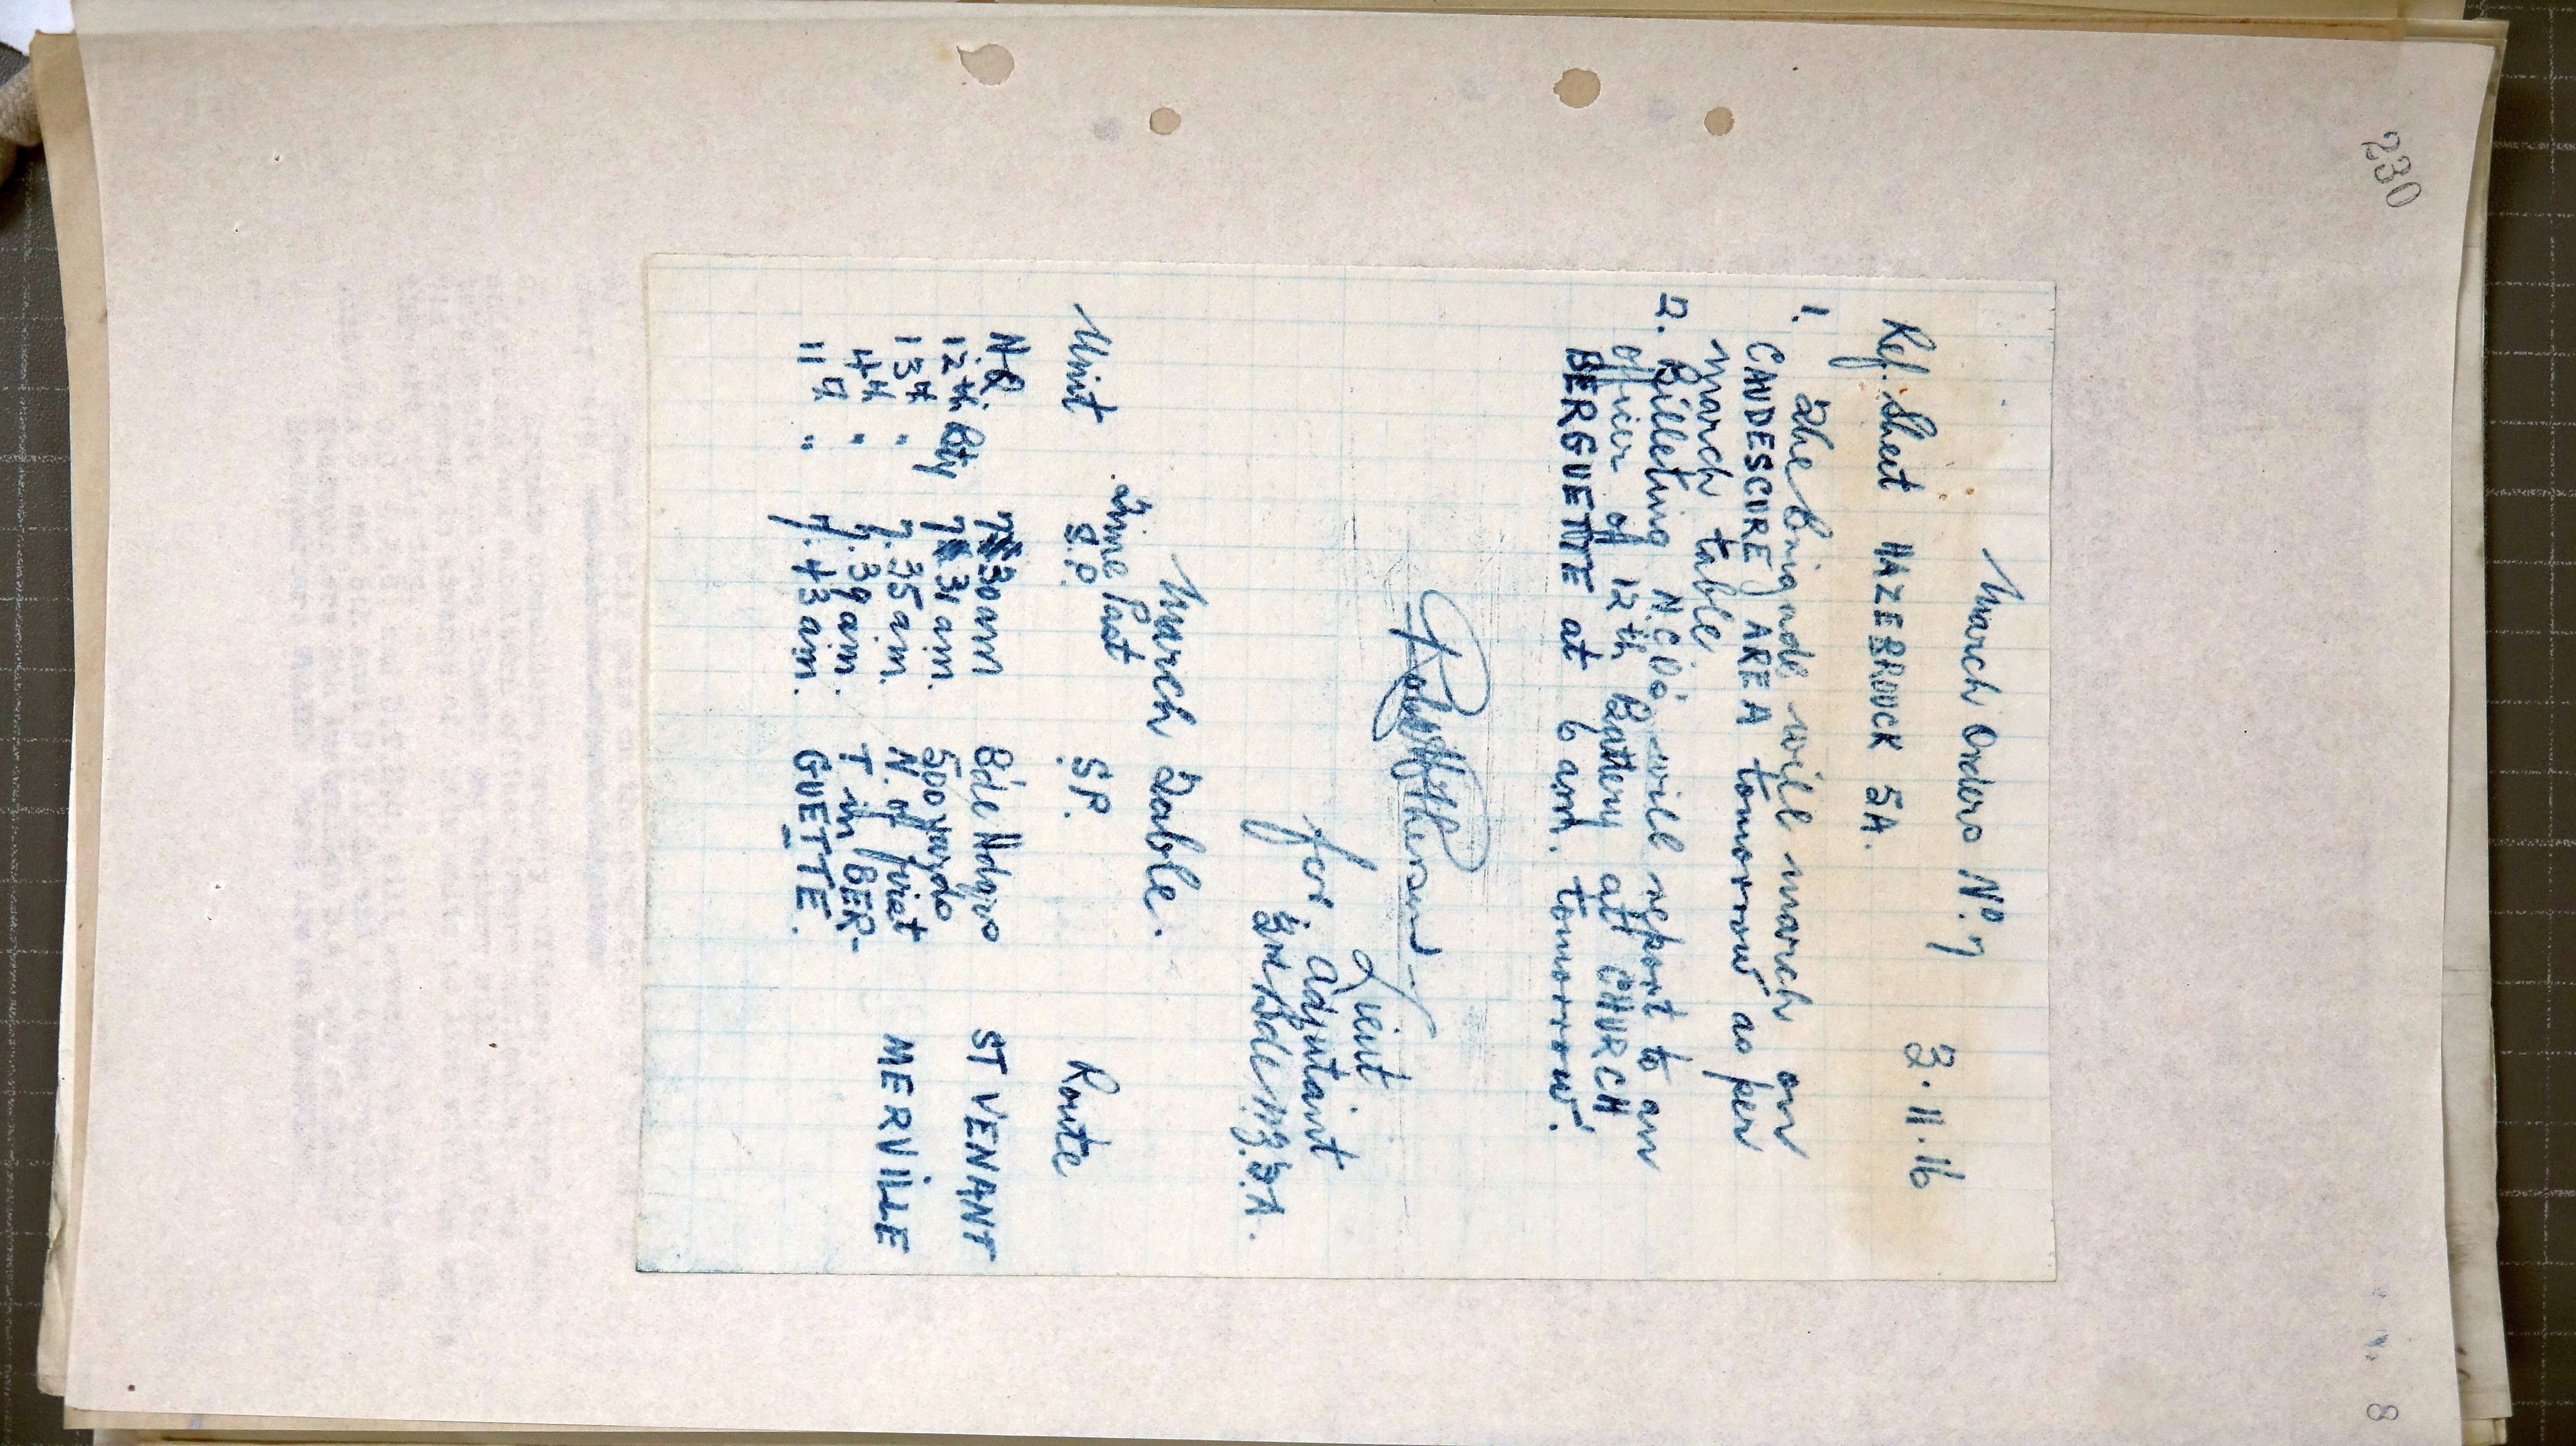 230
March Orders No. 7
3.11.16
Ref. Sheet HAZEBROUCK 5A.
1. The brigade will march on
CAUDESCURE AREA tomorrow as per
march table.
2. Billeting N.C.Os will report to an
officer of 12th Battery at CHURCH
BERGUETTE at 6 am. tomorrow.
Lieut
for Adjutant
Bde N.Z.F.A.
March Table.
Unit Time Past S.P. S.P. Route
H.Q. 7 30 am Bde Hdqrs ST VENANT
12th Bty 7 31 am. 500 yards
13th " 7.35 am. N. of first MERVILLE
4th " 7.39 am. T in BER-
11th " 7.43 am. GUETTE.
8